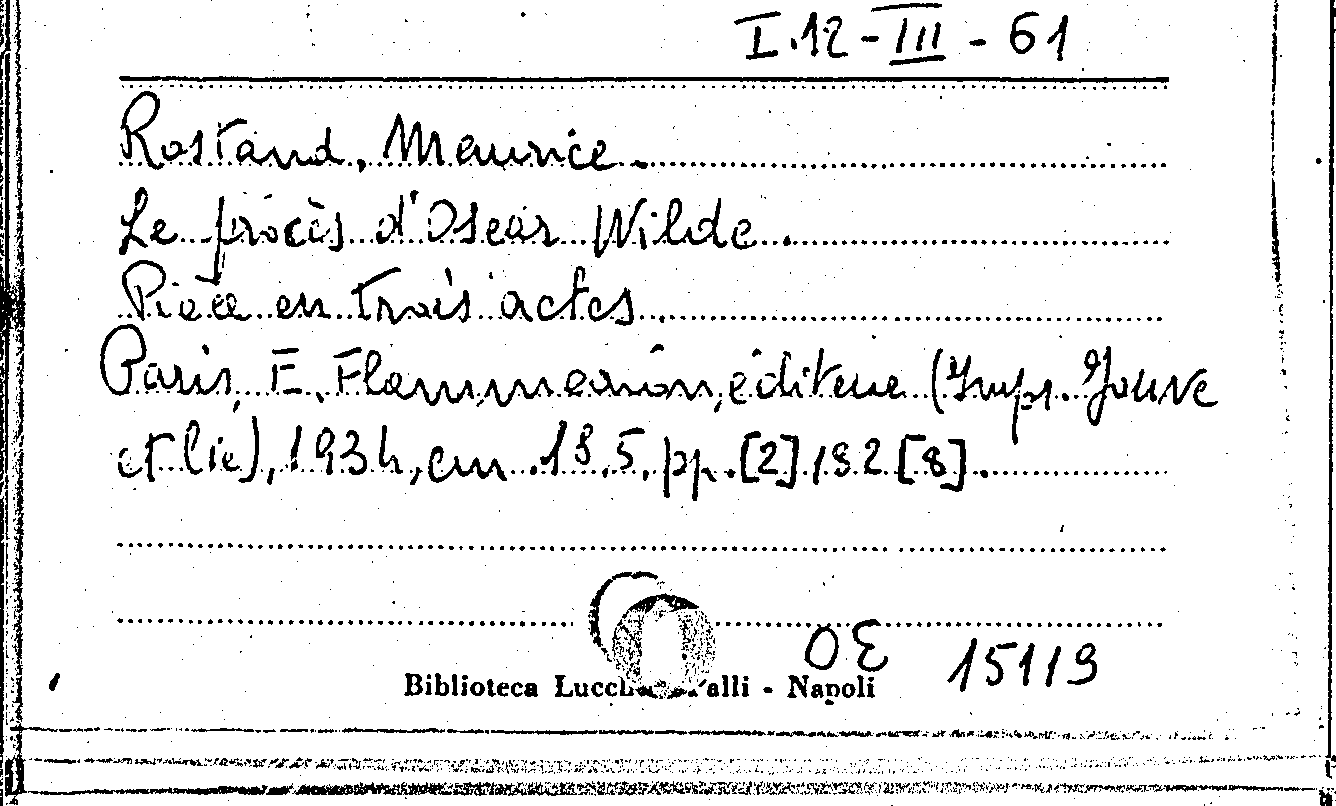 I.12-III-61
Rostand, Maurice.
Le procès d'Oscar Wilde.
Pièce en trois actes.
Paris, E. Flammarion, éditeur (Impr. Jouve
et Cie), 1934, cm. 19.5, pp. [2] 182 [8].
OE 15119
Biblioteca - Napoli